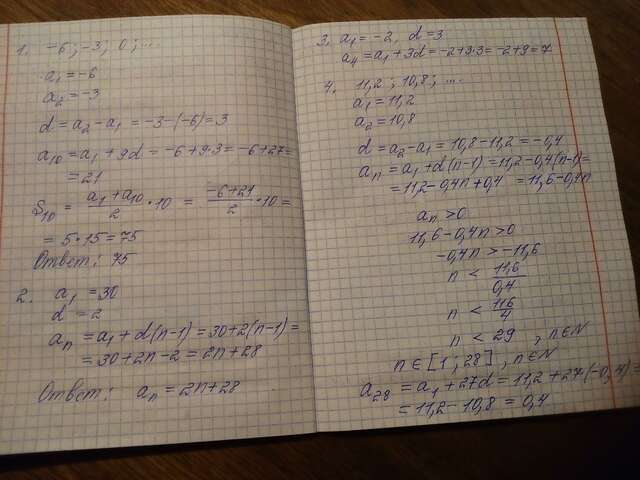 1. -6 ; -3 ; 0 ; ...
a₁ = -6
a₂ = -3
d = a₂ - a₁ = -3 - (-6) = 3
a₁₀ = a₁ + 9d = -6 + 9·3 = -6 + 27 =
= 21
S₁₀ = (a₁ + a₁₀)/2 · 10 = (-6 + 21)/2 · 10 =
= 5 · 15 = 75
Ответ: 75
2. a₁ = 30
d = 2
aₙ = a₁ + d(n-1) = 30 + 2(n-1) =
= 30 + 2n - 2 = 2n + 28
Ответ: aₙ = 2n + 28
3. a₁ = -2, d = 3
a₄ = a₁ + 3d = -2 + 3·3 = -2 + 9 = 7
4. 11,2 ; 10,8 ; ...
a₁ = 11,2
a₂ = 10,8
d = a₂ - a₁ = 10,8 - 11,2 = -0,4
aₙ = a₁ + d(n-1) = 11,2 - 0,4(n-1) =
= 11,2 - 0,4n + 0,4 = 11,6 - 0,4n
aₙ > 0
11,6 - 0,4n > 0
-0,4n > -11,6
n < 11,6/0,4
n < 116/4
n < 29 , n ∈ N
n ∈ [1 ; 28] , n ∈ N
a₂₈ = a₁ + 27d = 11,2 + 27(-0,4) =
= 11,2 - 10,8 = 0,4